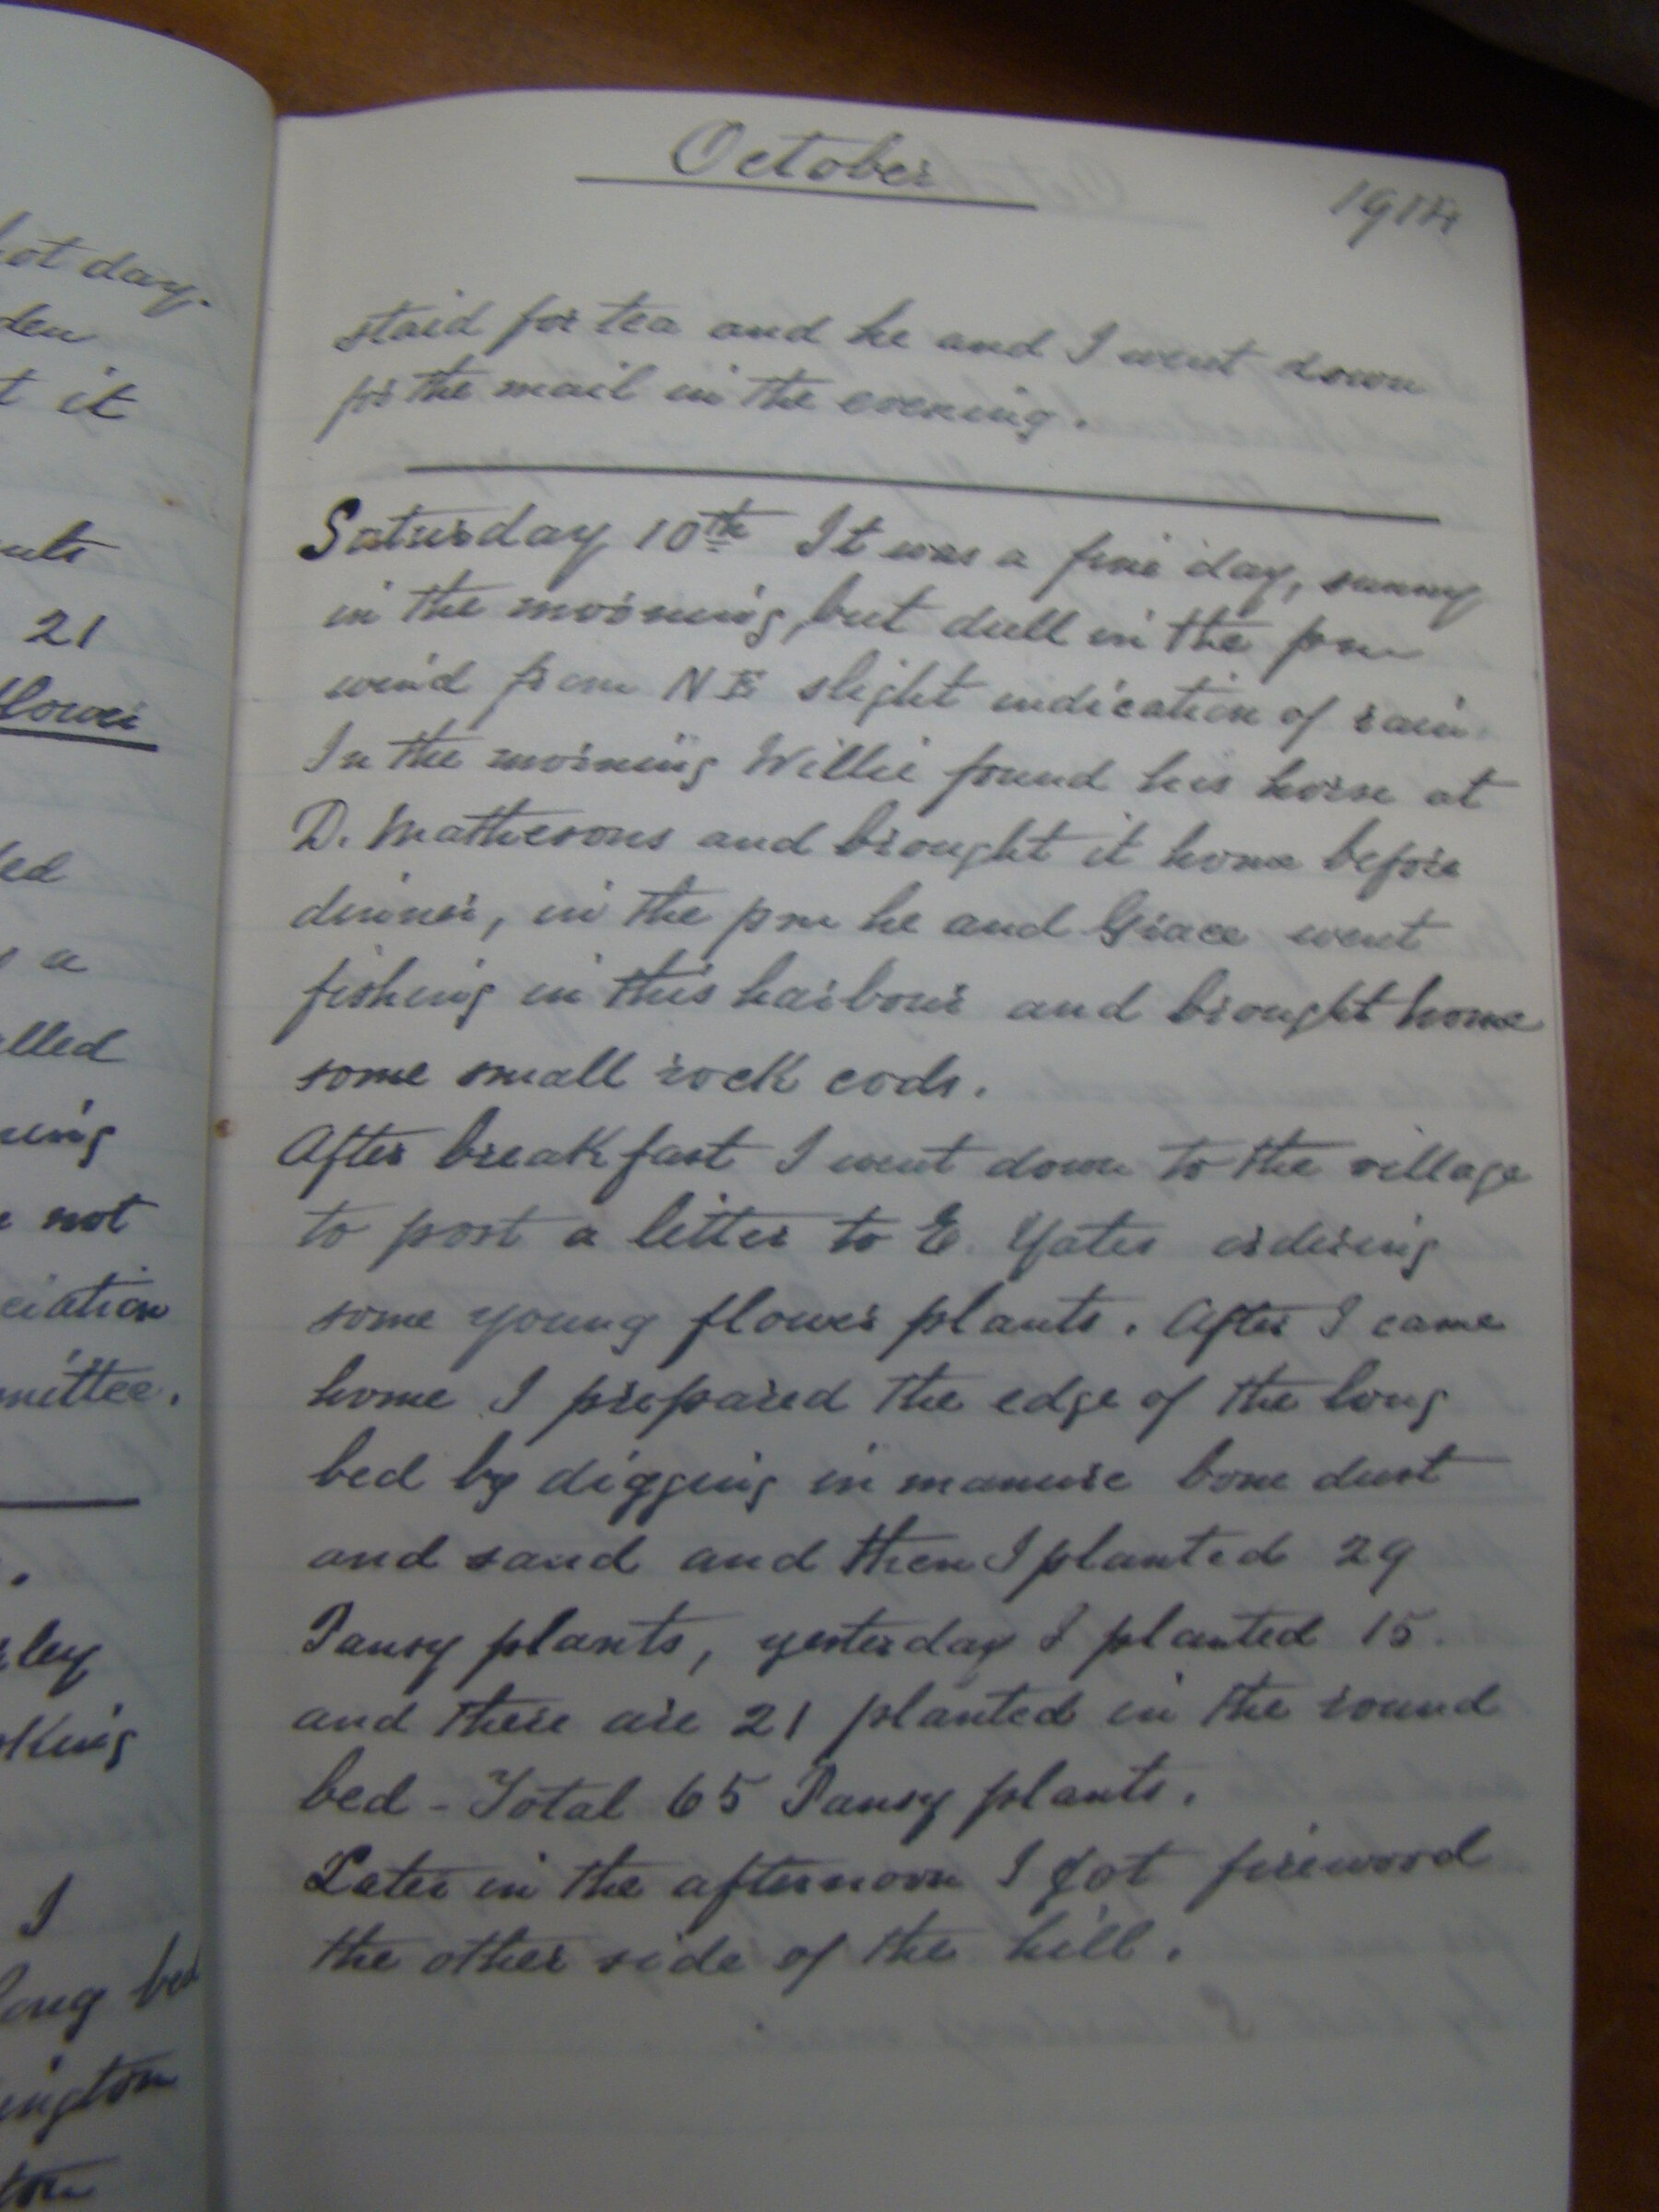 hot day.
it
21
a
not
mittee.
I
long bed
October
1914
staid for tea and he and I went down
for the mail in the evening.
Saturday 10th It was a fine day, sunny
in the morning, but dull in the pm
wind from NE slight indication of rain.
In the morning Willie found his horse at
D. Mathesons and brought it home before
dinner, in the pm he and Grace went
fishing in this harbour and brought home
some small rock cods.
After breakfast I went down to the village
to post a letter to E. Yates ordering
some young flower plants. After I came
home I prepared the edge of the long
bed by digging in manure bone dust
and sand and then I planted 29
Pansy plants, yesterday I planted 15
and there are 21 planted in the round
bed - Total 65 Pansy plants.
Later in the afternoon I got firewood
the other side of the hill.